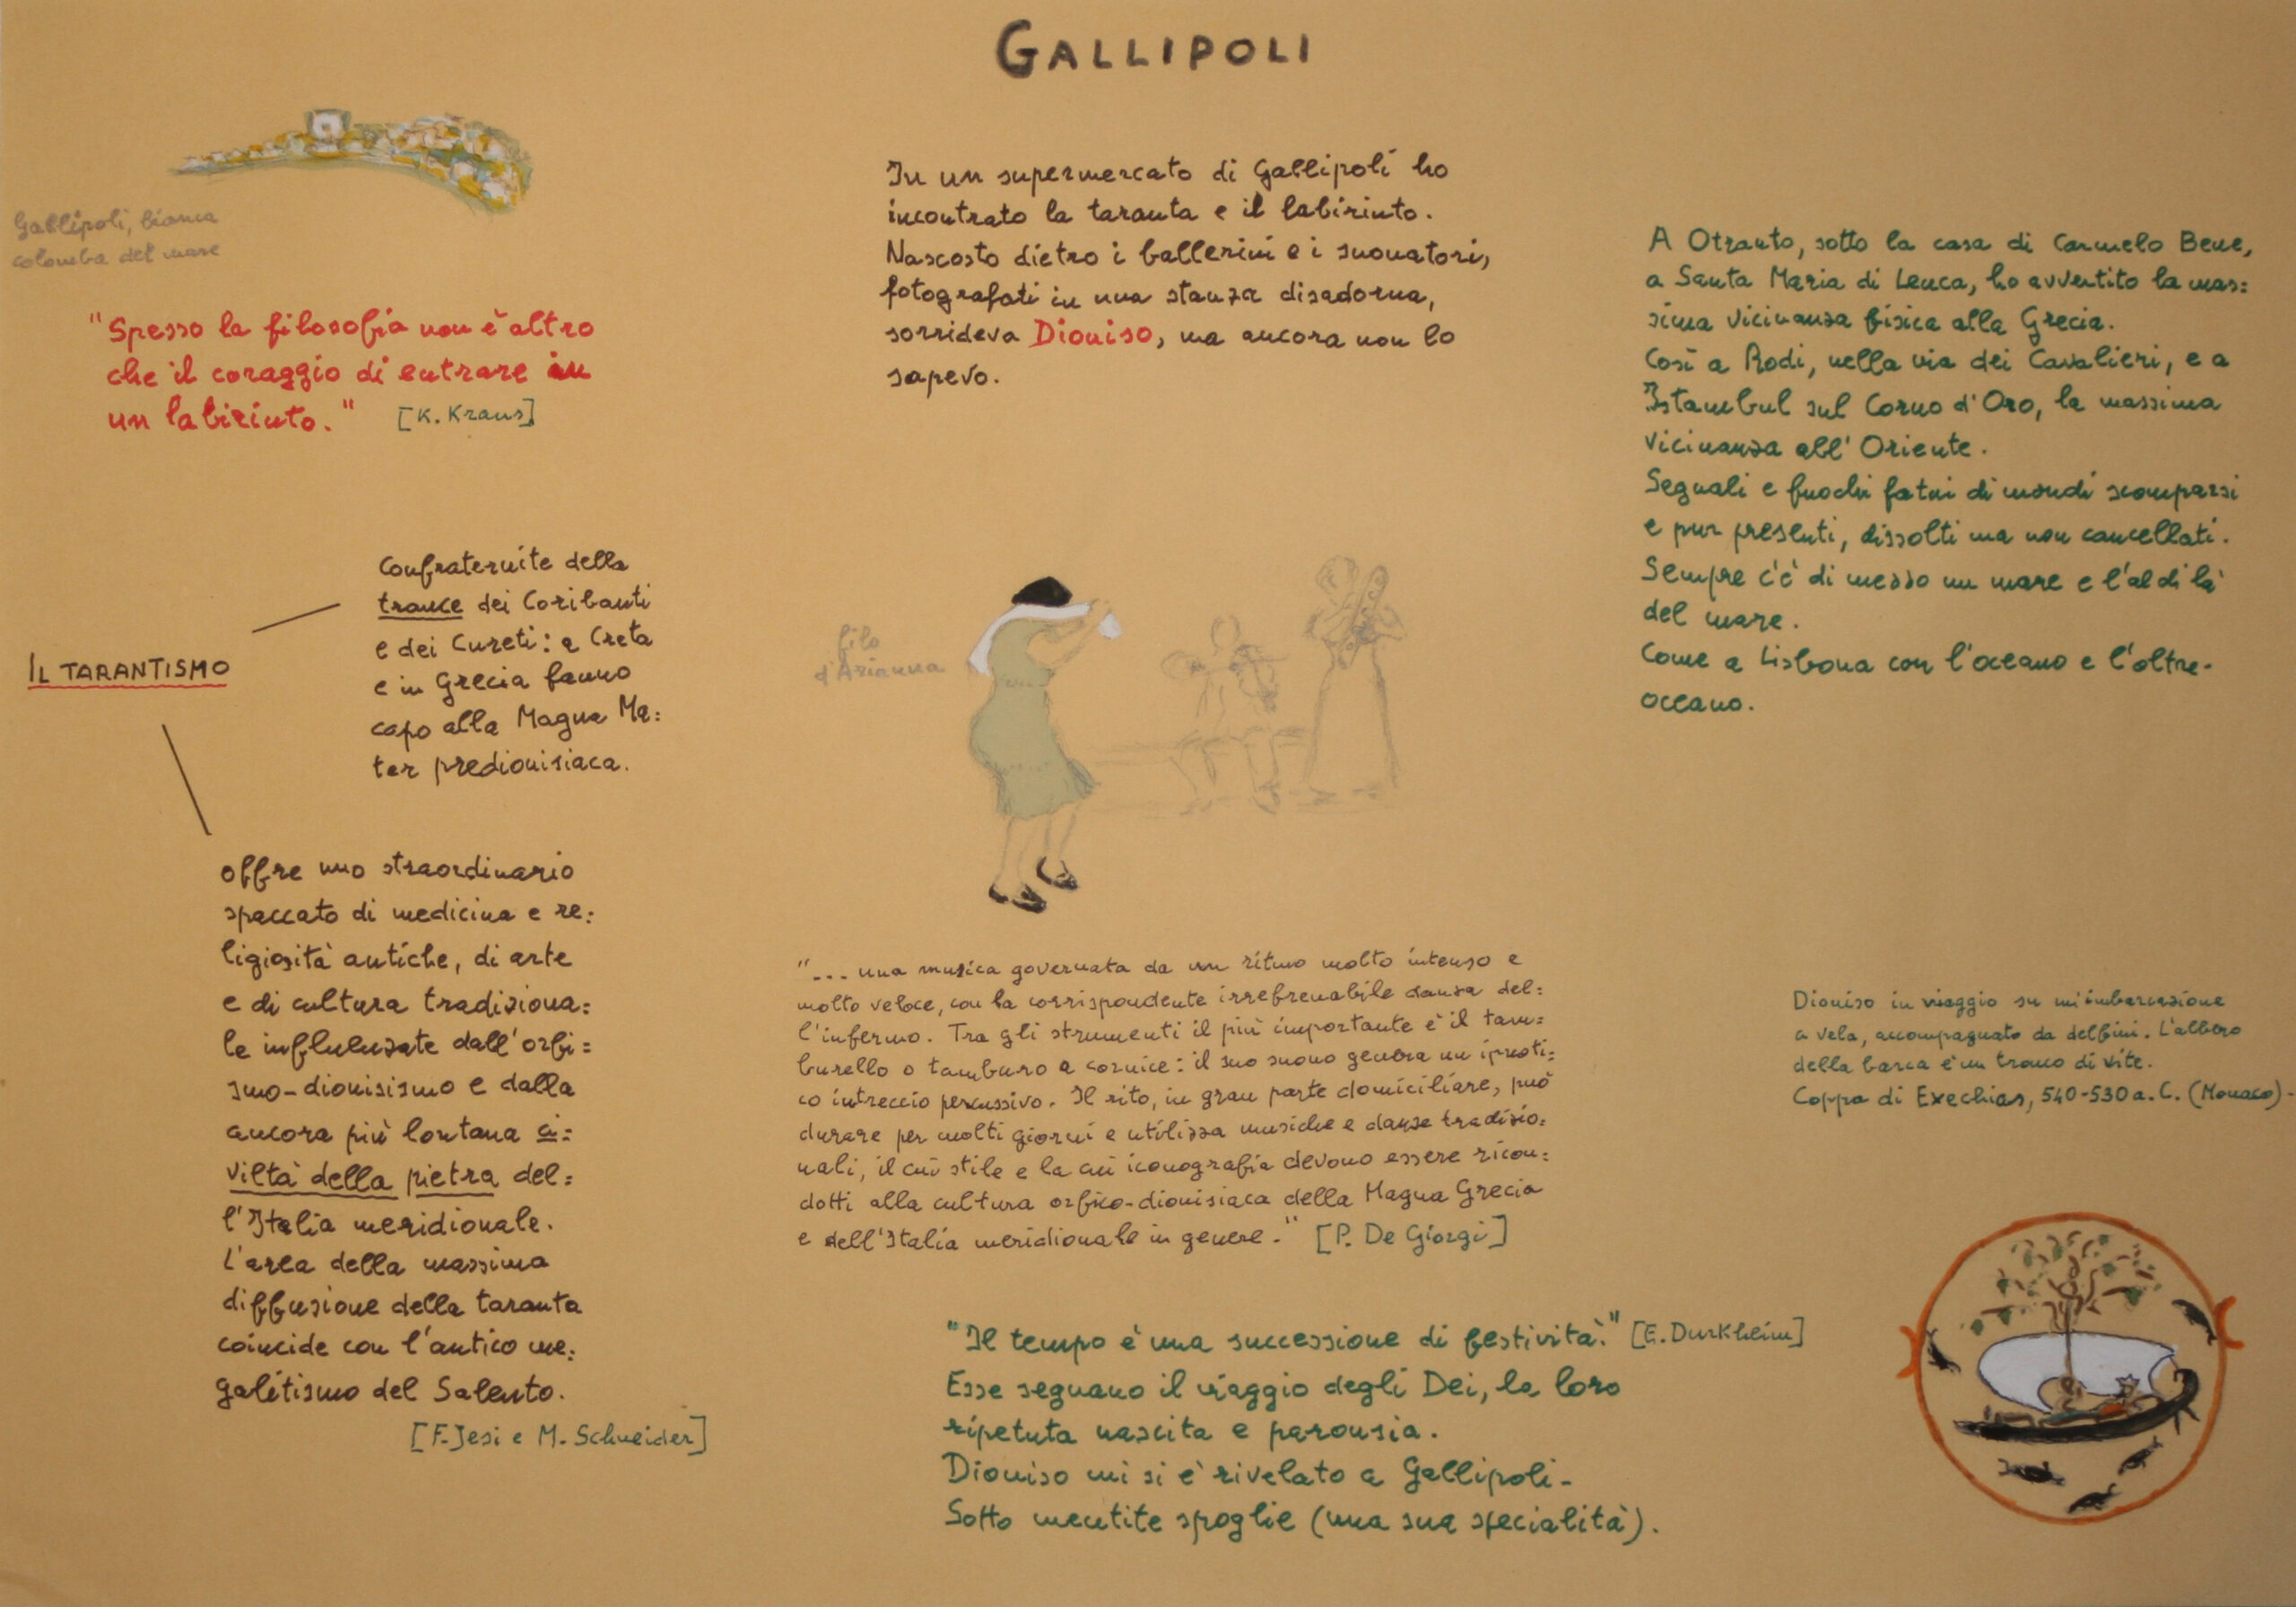 GALLIPOLI
Gallipoli, bianca
colomba del mare
"Spesso la filosofia non è altro
che il coraggio di entrare in
un labirinto." [K. Kraus]
In un supermercato di Gallipoli ho
incontrato la taranta e il labirinto.
Nascosto dietro i ballerini e i suonatori,
fotografati in una stanza disadorna,
sorrideva Dioniso, ma ancora non lo
sapevo.
A Otranto, sotto la casa di Carmelo Bene,
a Santa Maria di Leuca, ho avvertito la mas=
sima vicinanza fisica alla Grecia.
Così a Rodi, nella via dei Cavalieri, e a
Istambul sul Corno d'Oro, la massima
vicinanza all'Oriente.
Segnali e fuochi fatui di mondi scomparsi
e pur presenti, dissolti ma non cancellati.
Sempre c'è di mezzo un mare e l'al di là
del mare.
Come a Lisbona con l'oceano e l'oltre-
oceano.
IL TARANTISMO
Confraternite della
trance dei Coribanti
e dei Cureti: a Creta
e in Grecia fanno
capo alla Magna Ma=
ter predionisiaca.
offre uno straordinario
spaccato di medicina e re=
ligiosità antiche, di arte
e di cultura tradiziona=
le influenzate dall'orfi=
smo-dionisismo e dalla
ancora più lontana ci=
viltà della pietra del=
l'Italia meridionale.
L'area della massima
diffusione della taranta
coincide con l'antico me=
galitismo del Salento.
[F. Jesi e M. Schneider]
filo
d'Arianna
"... una musica governata da un ritmo molto intenso e
molto veloce, con la corrispondente irrefrenabile danza del=
l'infermo. Tra gli strumenti il più importante è il tam=
burello o tamburo a cornice: il suo suono genera un ipnoti=
co intreccio percussivo. Il rito, in gran parte domiciliare, può
durare per molti giorni e utilizza musiche e danze tradizio=
nali, il cui stile e la cui iconografia devono essere ricon=
dotti alla cultura orfico-dionisiaca della Magna Grecia
e dell'Italia meridionale in genere." [P. De Giorgi]
"Il tempo è una successione di festività." [E. Durkheim]
Esse segnano il viaggio degli Dei, la loro
ripetuta nascita e parousia.
Dioniso mi si è rivelato a Gallipoli-
Sotto mentite spoglie (una sua specialità).
Dioniso in viaggio su un'imbarcazione
a vela, accompagnato da delfini. L'albero
della barca è un tronco di vite.
Coppa di Exechias, 540-530 a.C. (Monaco)-